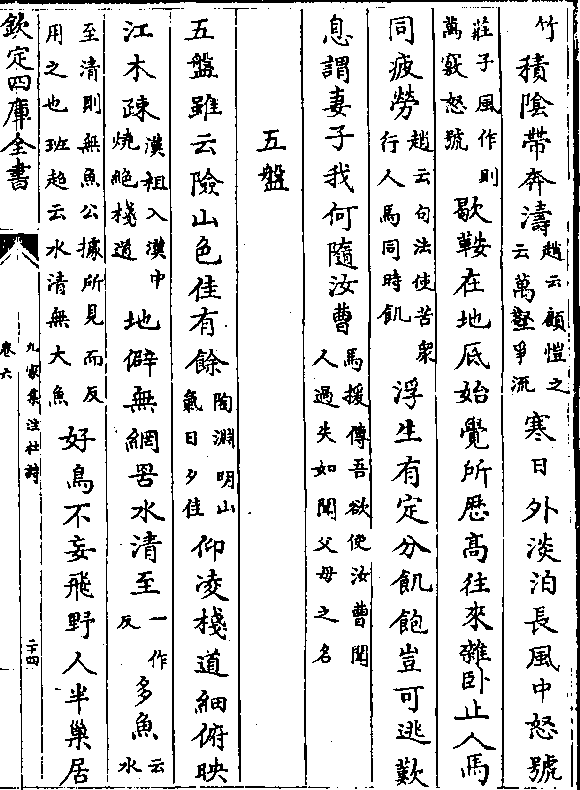 竹積陰帶奔濤趙云顧愷之云萬壑爭流寒日外淡泊長風中怒號
莊子風作則萬竅怒號歇鞍在地底始覺所歷高往來雜卧止人馬
同疲勞趙云句法使苦衆行人馬同時飢浮生有定分飢飽豈可逃歎
息謂妻子我何隨汝曹馬援傳吾欲使汝曹聞人過失如聞父母之名
五盤
五盤雖云險山色佳有餘陶淵明山氣日夕佳仰凌棧道細俯映
江木疎漢祖入漢中燒絶棧道地僻無網罟水清至一作反多魚云水
至清則無魚公據所見而反用之也班超云水清無大魚好鳥不妄飛野人半巢居
欽定四庫全書
九家集注杜詩
卷六
二十四